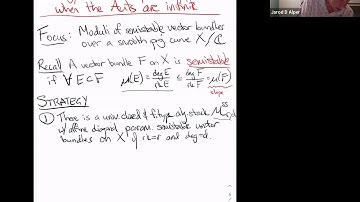 when the Auts are infinite
Jarod D Alper
Focus: Moduli of semistable vector bundles
over a smooth proj curve X/C
Recall A vector bundle F on X is semistable
if ∀ E⊂F μ(E) = deg E / rk E ≤ deg F / rk F = μ(F)
slope
STRATEGY
① There is a univ. closed & f.type alg. stack M^ss_r,d
w/ affine diagonal param. semistable vector
bundles on X of rk=r and deg=d.